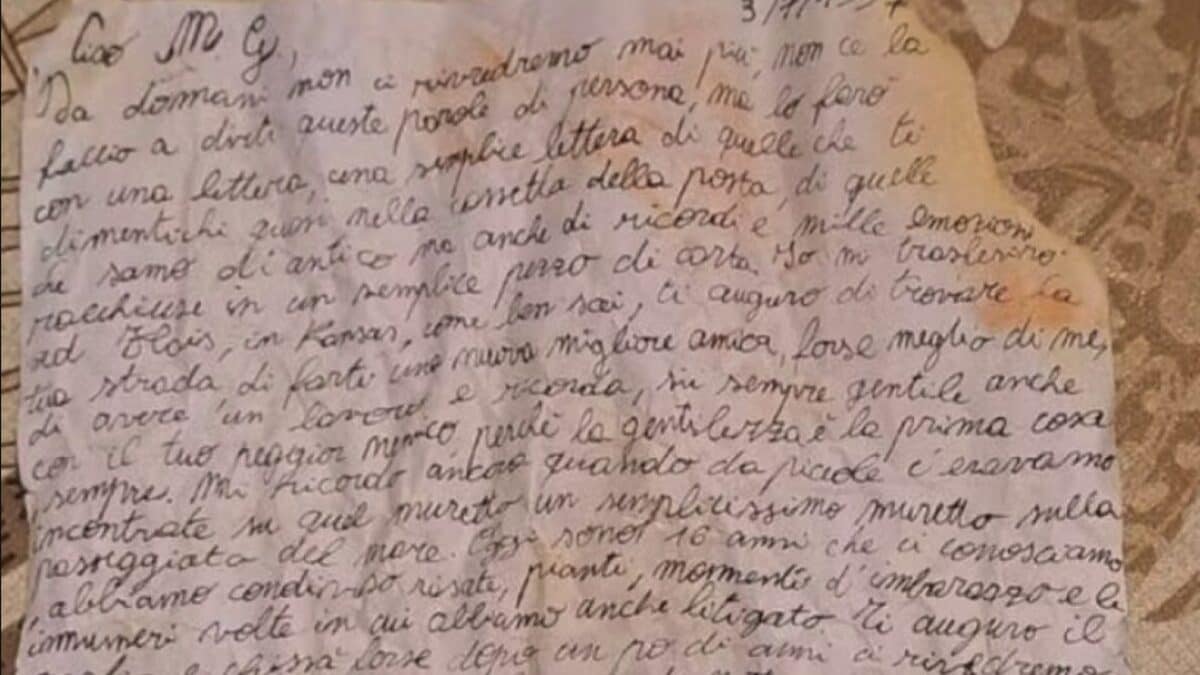 Ciao M. Cy,
Da domani non ci rivedremo mai più, non ce la
faccio a dirti queste parole di persona, ma lo farò
con una lettera, una semplice lettera di quelle che ti
dimentichi quasi nella cassetta della posta, di quelle
che sanno di antico ma anche di ricordi e mille emozioni
racchiuse in un semplice pezzo di carta. Io mi trasferirò
ad in Kansas, come ben sai, ti auguro di trovare la
tua strada, di farti una nuova migliore amica, forse meglio di me,
di avere un lavoro e ricorda, sii sempre gentile anche
con il tuo peggior nemico perché la gentilezza è la prima cosa
sempre. Mi ricordo ancora quando da piccole c'eravamo
incontrate su quel muretto un semplicissimo muretto sulla
passeggiata del mare. Oggi sono 16 anni che ci conosciamo
abbiamo condiviso risate, pianti, momenti d'imbarazzo e le
innumeri volte in cui abbiamo anche litigato. Ti auguro il
chissà forse dopo un po di anni ci rivedremo